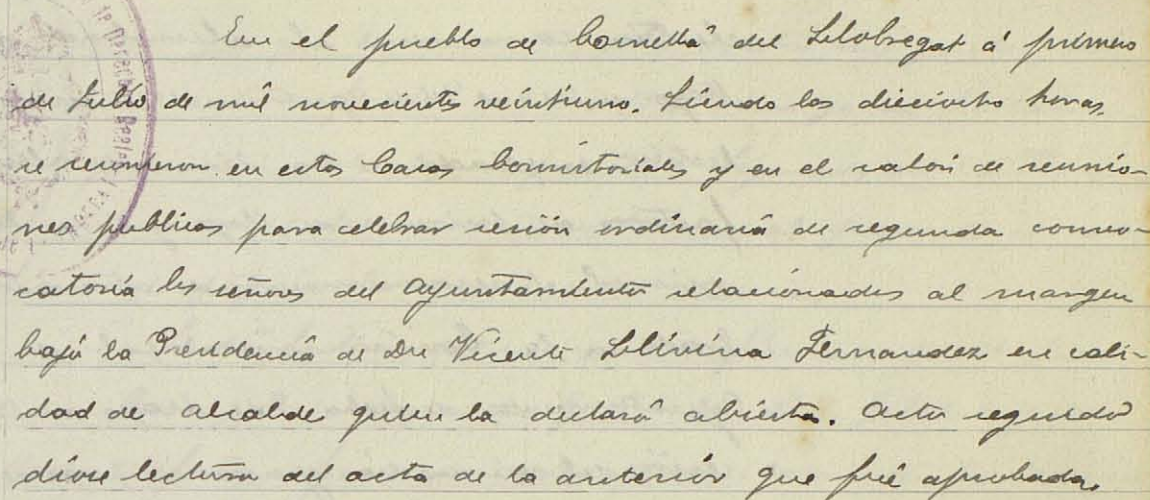 En el pueblo de Cornellá del Llobregat á primero
de Julio de mil novecientos veintiuno. Siendo las dieciocho horas,
se reunieron en estas Casas Consistoriales y en el salon de reunio-
nes publicas para celebrar sesión ordinaria de segunda convo-
catoria los señores del Ayuntamiento relacionados al margen
bajo la Presidencia de Dn Vicente Llivina Fernandez en cali-
dad de alcalde quien la declaró abierta. Acto seguido
dióse lectura del acta de la anterior que fué aprobada.